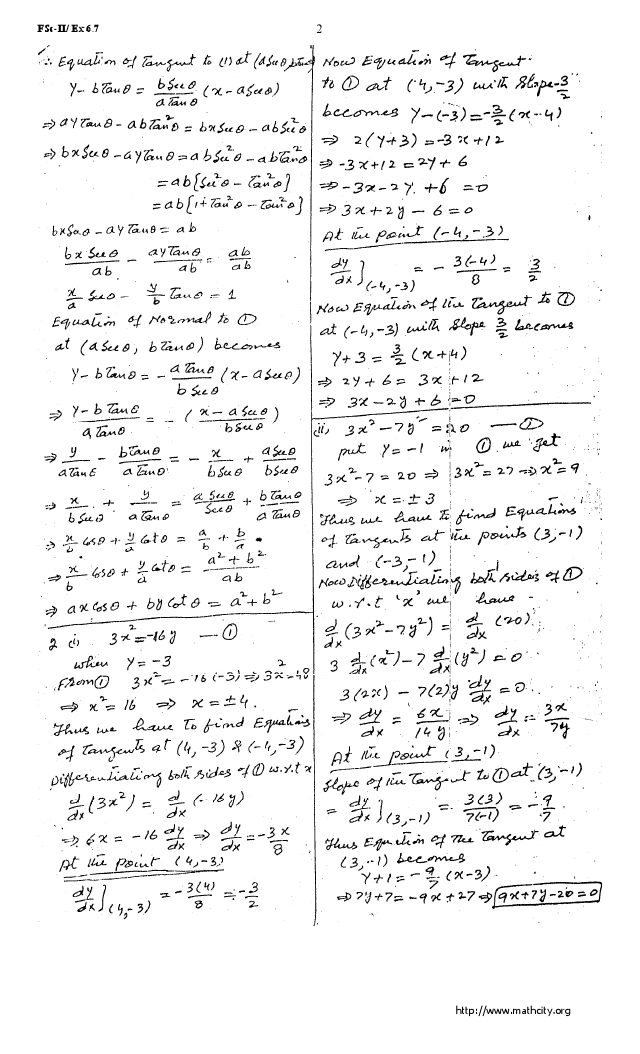 FSc-II/ Ex 6.7
2
∴ Equation of Tangent to (1) at (a Secθ, b tanθ)
y - b Tanθ = b Secθ / a Tanθ (x - a Secθ)
⇒ ay Tanθ - ab Tan²θ = bx Secθ - ab Sec²θ
⇒ bx Secθ - ay Tanθ = ab Sec²θ - ab Tan²θ
= ab[Sec²θ - Tan²θ]
= ab[1 + Tan²θ - Tan²θ]
bx Secθ - ay Tanθ = ab
bx Secθ / ab - ay Tanθ / ab = ab / ab
x/a Secθ - y/b Tanθ = 1
Equation of Normal to ①
at (a Secθ, b Tanθ) becomes
y - b Tanθ = - a Tanθ / b Secθ (x - a Secθ)
⇒ y - b Tanθ / a Tanθ = - (x - a Secθ) / b Secθ
⇒ y / a Tanθ - b Tanθ / a Tanθ = - x / b Secθ + a Secθ / b Secθ
⇒ x / b Secθ + y / a Tanθ = a Secθ / Secθ + b Tanθ / a Tanθ
⇒ x/b Cosθ + y/a Cotθ = a/b + b/a
⇒ x/b Cosθ + y/a Cotθ = a² + b² / ab
⇒ ax Cosθ + by Cotθ = a² + b²
2 (i) 3x² = -16y —①
when y = -3
From ① 3x² = -16(-3) ⇒ 3x² = 48
⇒ x² = 16 ⇒ x = ±4.
Thus we have to find Equations
of Tangents at (4, -3) & (-4, -3)
Differentiating both sides of ① w.r.t x
d/dx (3x²) = d/dx (-16y)
⇒ 6x = -16 dy/dx ⇒ dy/dx = -3x/8
At the point (4, -3)
dy/dx](4, -3) = -3(4)/8 = -3/2
Now Equation of Tangent
to ① at (4, -3) with Slope -3/2
becomes y - (-3) = -3/2 (x - 4)
⇒ 2(y + 3) = -3x + 12
⇒ -3x + 12 = 2y + 6
⇒ -3x - 2y + 6 = 0
⇒ 3x + 2y - 6 = 0
At the point (-4, -3)
dy/dx](-4, -3) = - 3(-4)/8 = 3/2
Now Equation of the Tangent to ①
at (-4, -3) with Slope 3/2 becomes
y + 3 = 3/2 (x + 4)
⇒ 2y + 6 = 3x + 12
⇒ 3x - 2y + 6 = 0
(ii) 3x² - 7y² = 20 —①
put y = -1 in ① we get
3x² - 7 = 20 ⇒ 3x² = 27 ⇒ x² = 9
⇒ x = ±3
Thus we have to find Equations
of Tangents at the points (3, -1)
and (-3, -1)
Now Differentiating both sides of ①
w.r.t 'x' we have
d/dx (3x² - 7y²) = d/dx (20)
3 d/dx (x²) - 7 d/dx (y²) = 0
3(2x) - 7(2)y dy/dx = 0
⇒ dy/dx = 6x/14y ⇒ dy/dx = 3x/7y
At the point (3, -1)
Slope of the Tangent to ① at (3, -1)
= dy/dx](3, -1) = 3(3)/7(-1) = -9/7
Thus Equation of The Tangent at
(3, -1) becomes
y + 1 = -9/7 (x - 3)
⇒ 7y + 7 = -9x + 27 ⇒ 9x + 7y - 20 = 0
http://www.mathcity.org